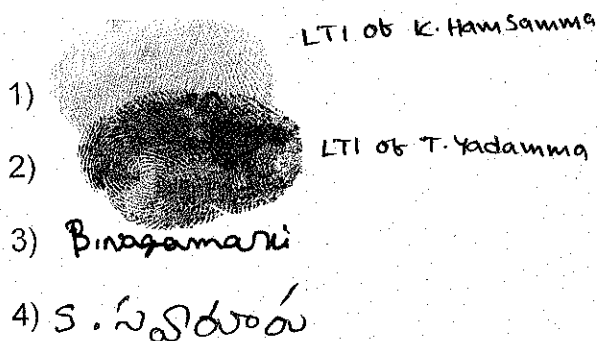 LTI of K. Hamsamma
1)
LTI of T. Yadamma
2)
3) B.nagamani
4) S.